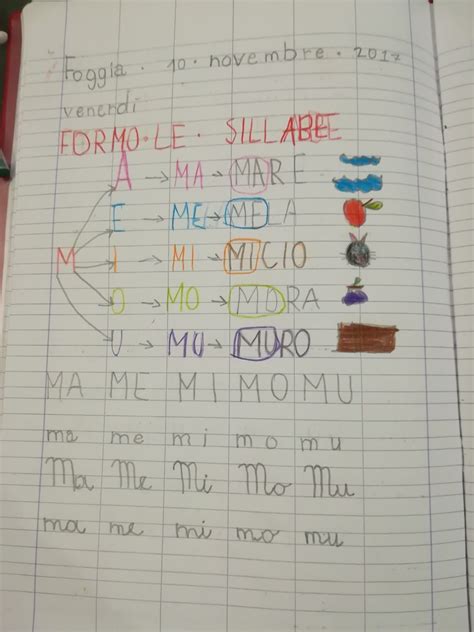 Foggia. 10. novembre. 2017
venerdì
FORMO. LE. SILLABE
A → MA → MARE
E → ME → MELA
M I → MI → MICIO
O → MO → MORA
U → MU → MURO
MA ME MI MO MU
ma me mi mo mu
Ma Me Mi Mo Mu
ma me mi mo mu